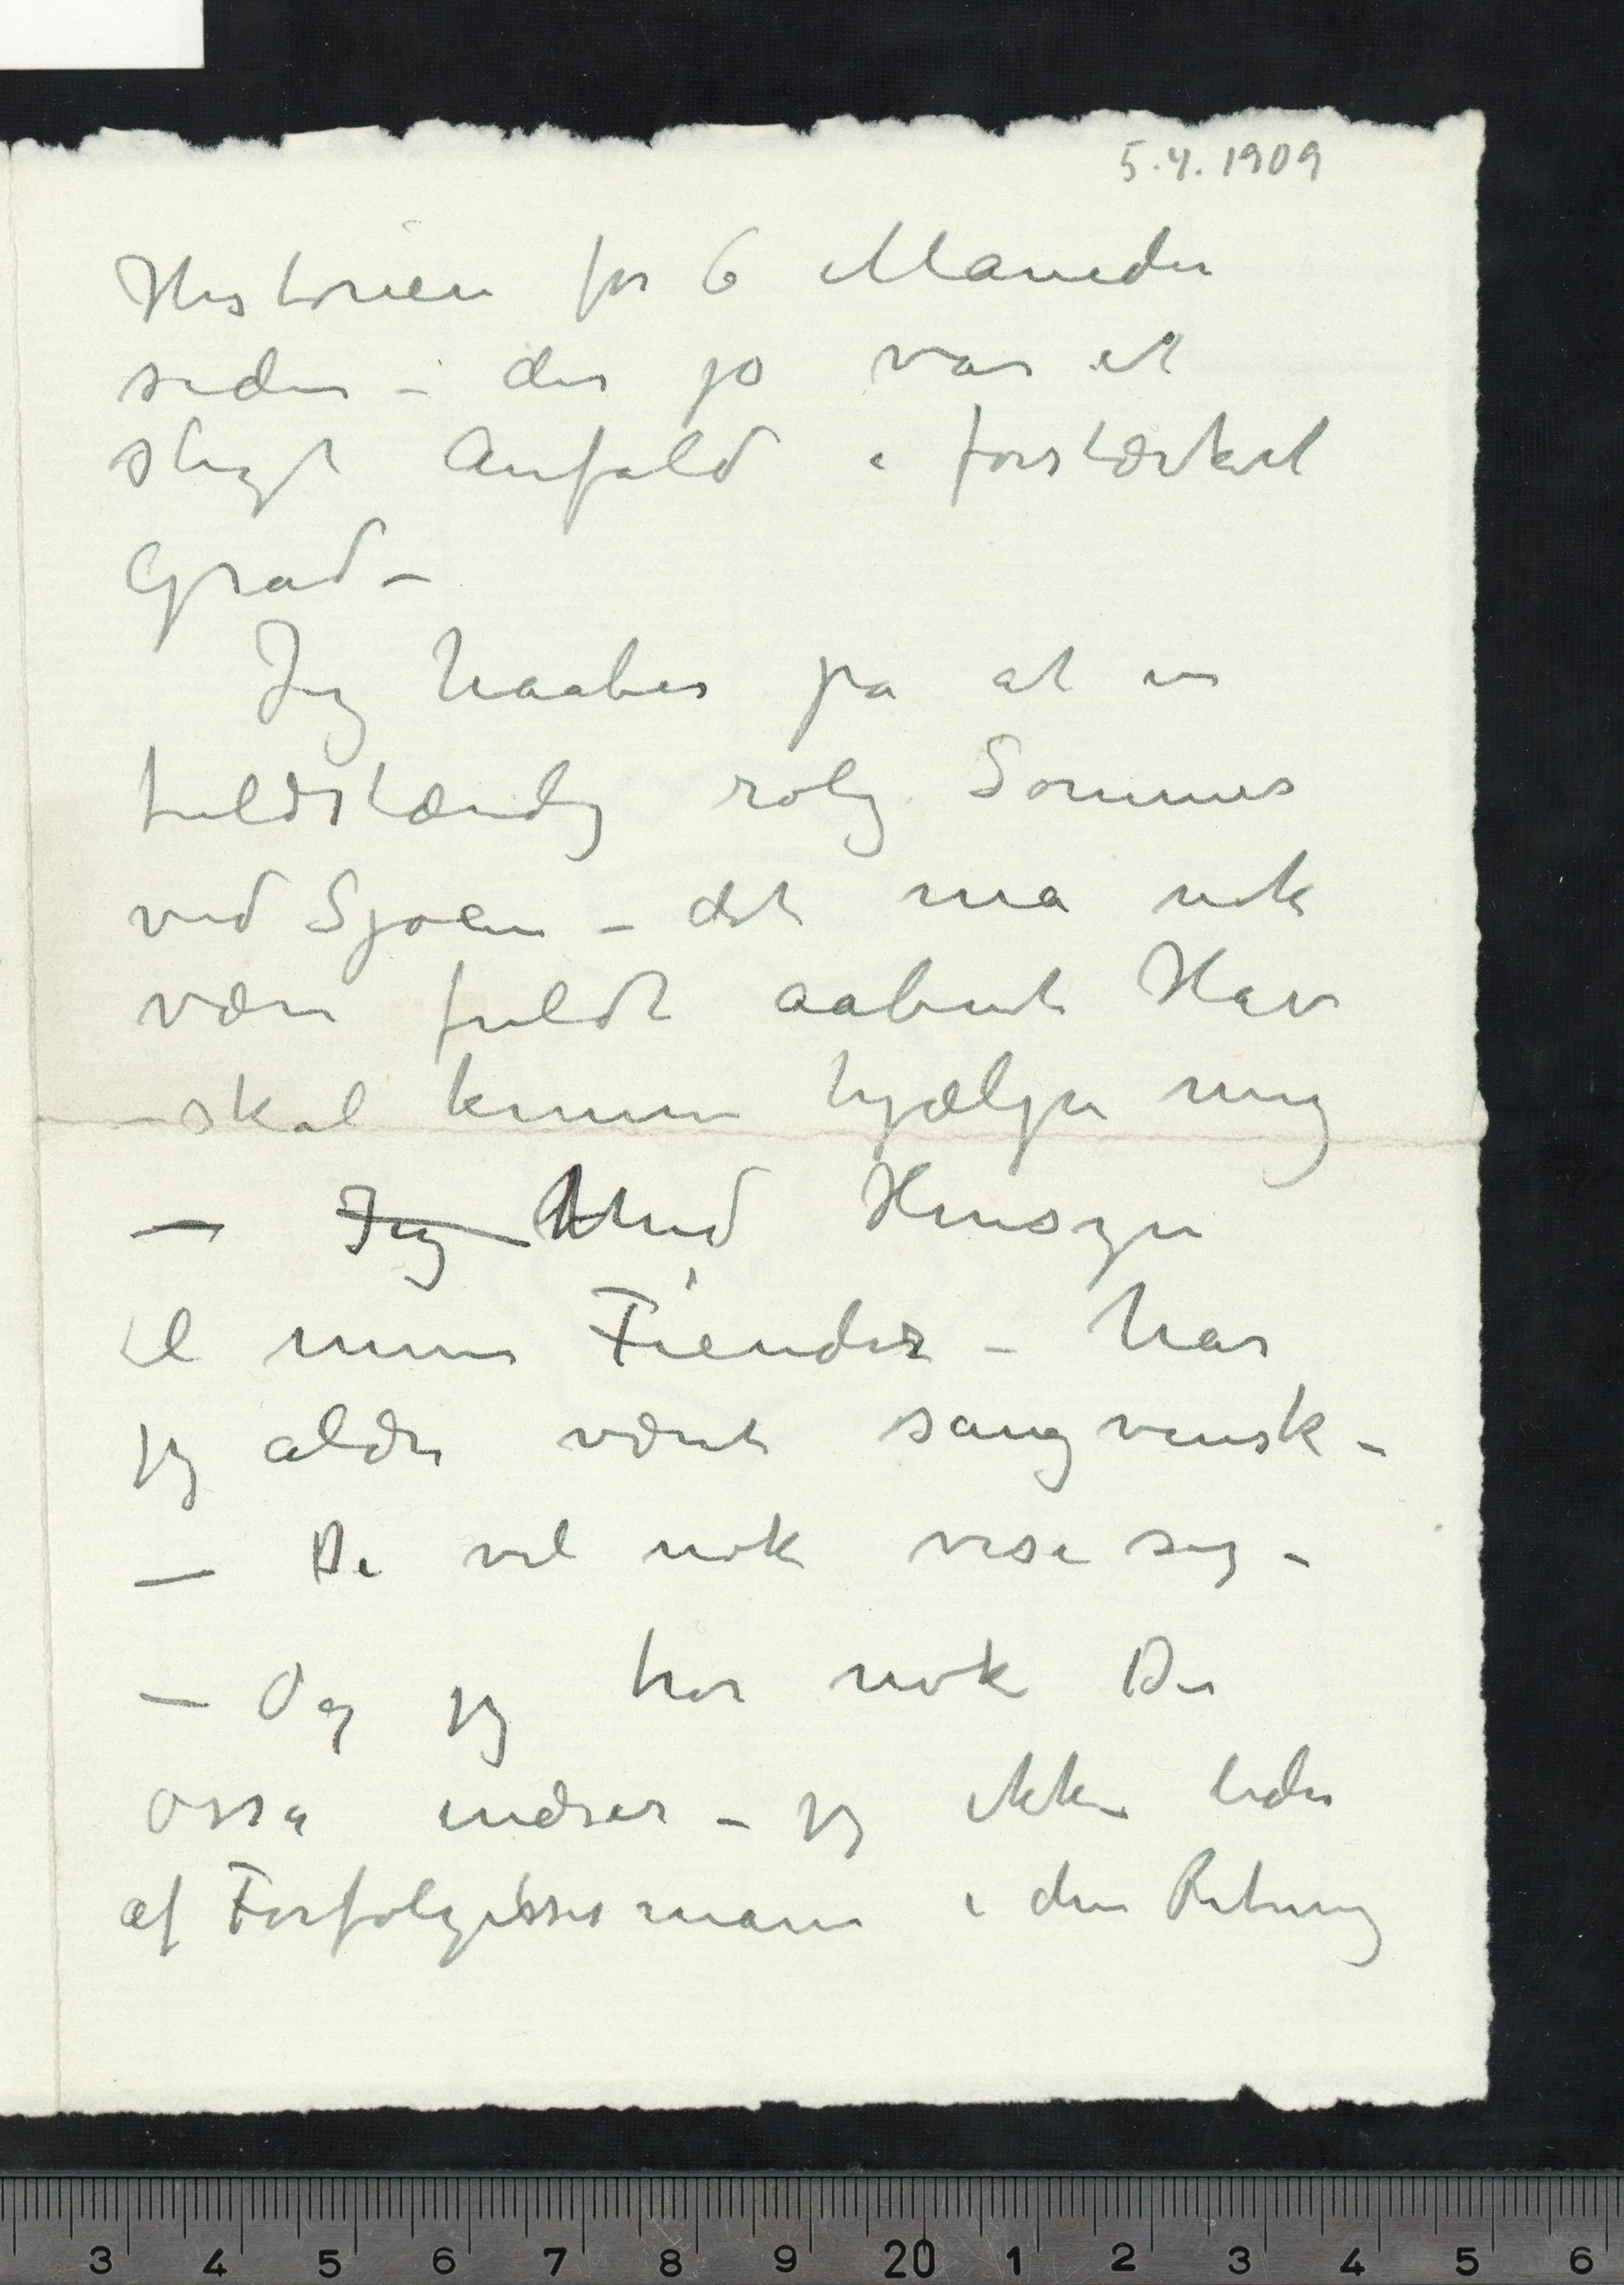 5.4.1909
Historien for 6 Maneder
siden – der jo var et
sligt Anfald i forstærket
Grad –
Jeg haaber pa at en
fuldstændig rolig Sommer
ved Sjøen – det ma nok
være fuldt aabent Hav
skal kunne hjælpe mig
— Jeg Med Hensyn
til mine Fiender – har
jeg aldri været sangvinsk –
— De vil nok vise sig –
— Og jeg tror nok De
ossa indser – jeg ikke lider
af Forfølgelsesmani i den Retning
3 4 5 6 7 8 9 20 1 2 3 4 5 6